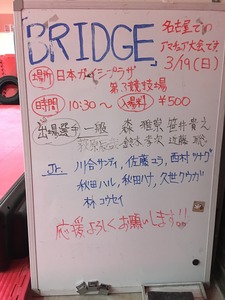 BRIDGE
名古屋での
アマチュア大会です
3/19(日)
場所 日本ガイシプラザ
第3競技場
時間 10:30〜 入場料 ¥500
出場選手 一般 森 雅崇 笹井貴之
鈴木孝次 近藤 聡
Jr. 川合サンティ, 佐藤ユラ, 西村ツナグ
秋田ハル, 秋田ハナ, 久世クウガ
林 コウセイ
応援よろしくお願いします!!